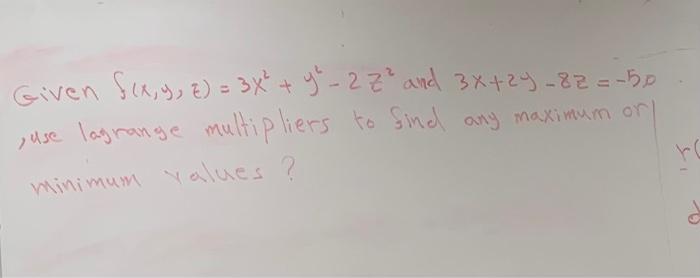 Given f(x,y,z) = 3x² + y² - 2z² and 3x+2y-8z = -50
, use lagrange multipliers to find any maximum or
minimum values ?